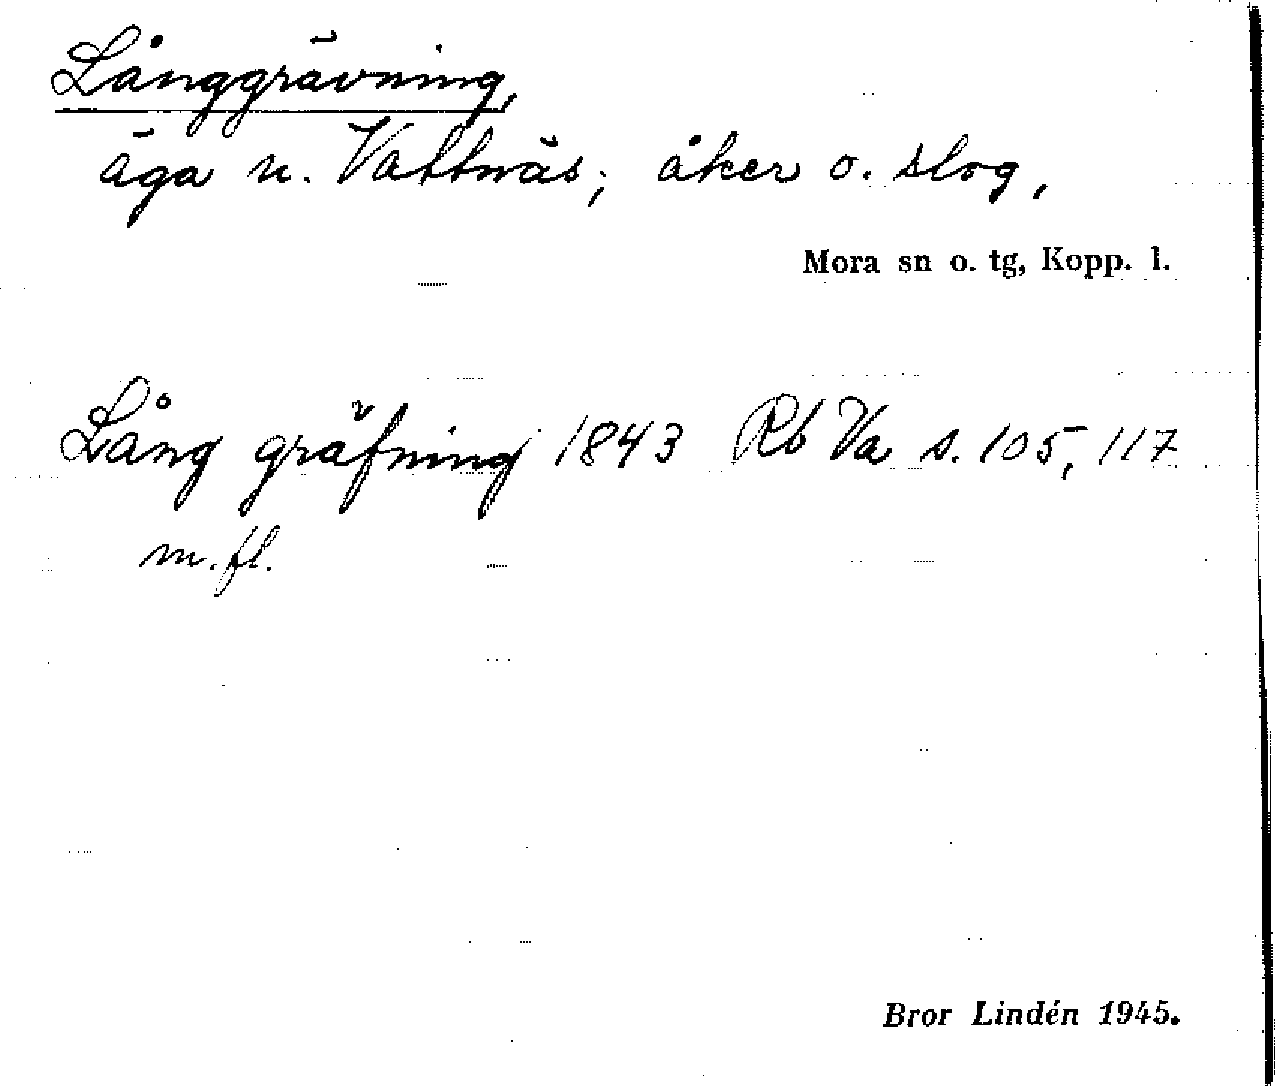 Långgrävning,
äga n. Vattnäs; åker o. slog,
Mora sn o. tg, Kopp. l.
Lång gräfning 1843 Rb Va s. 105, 117
m. fl.
Bror Lindén 1945.